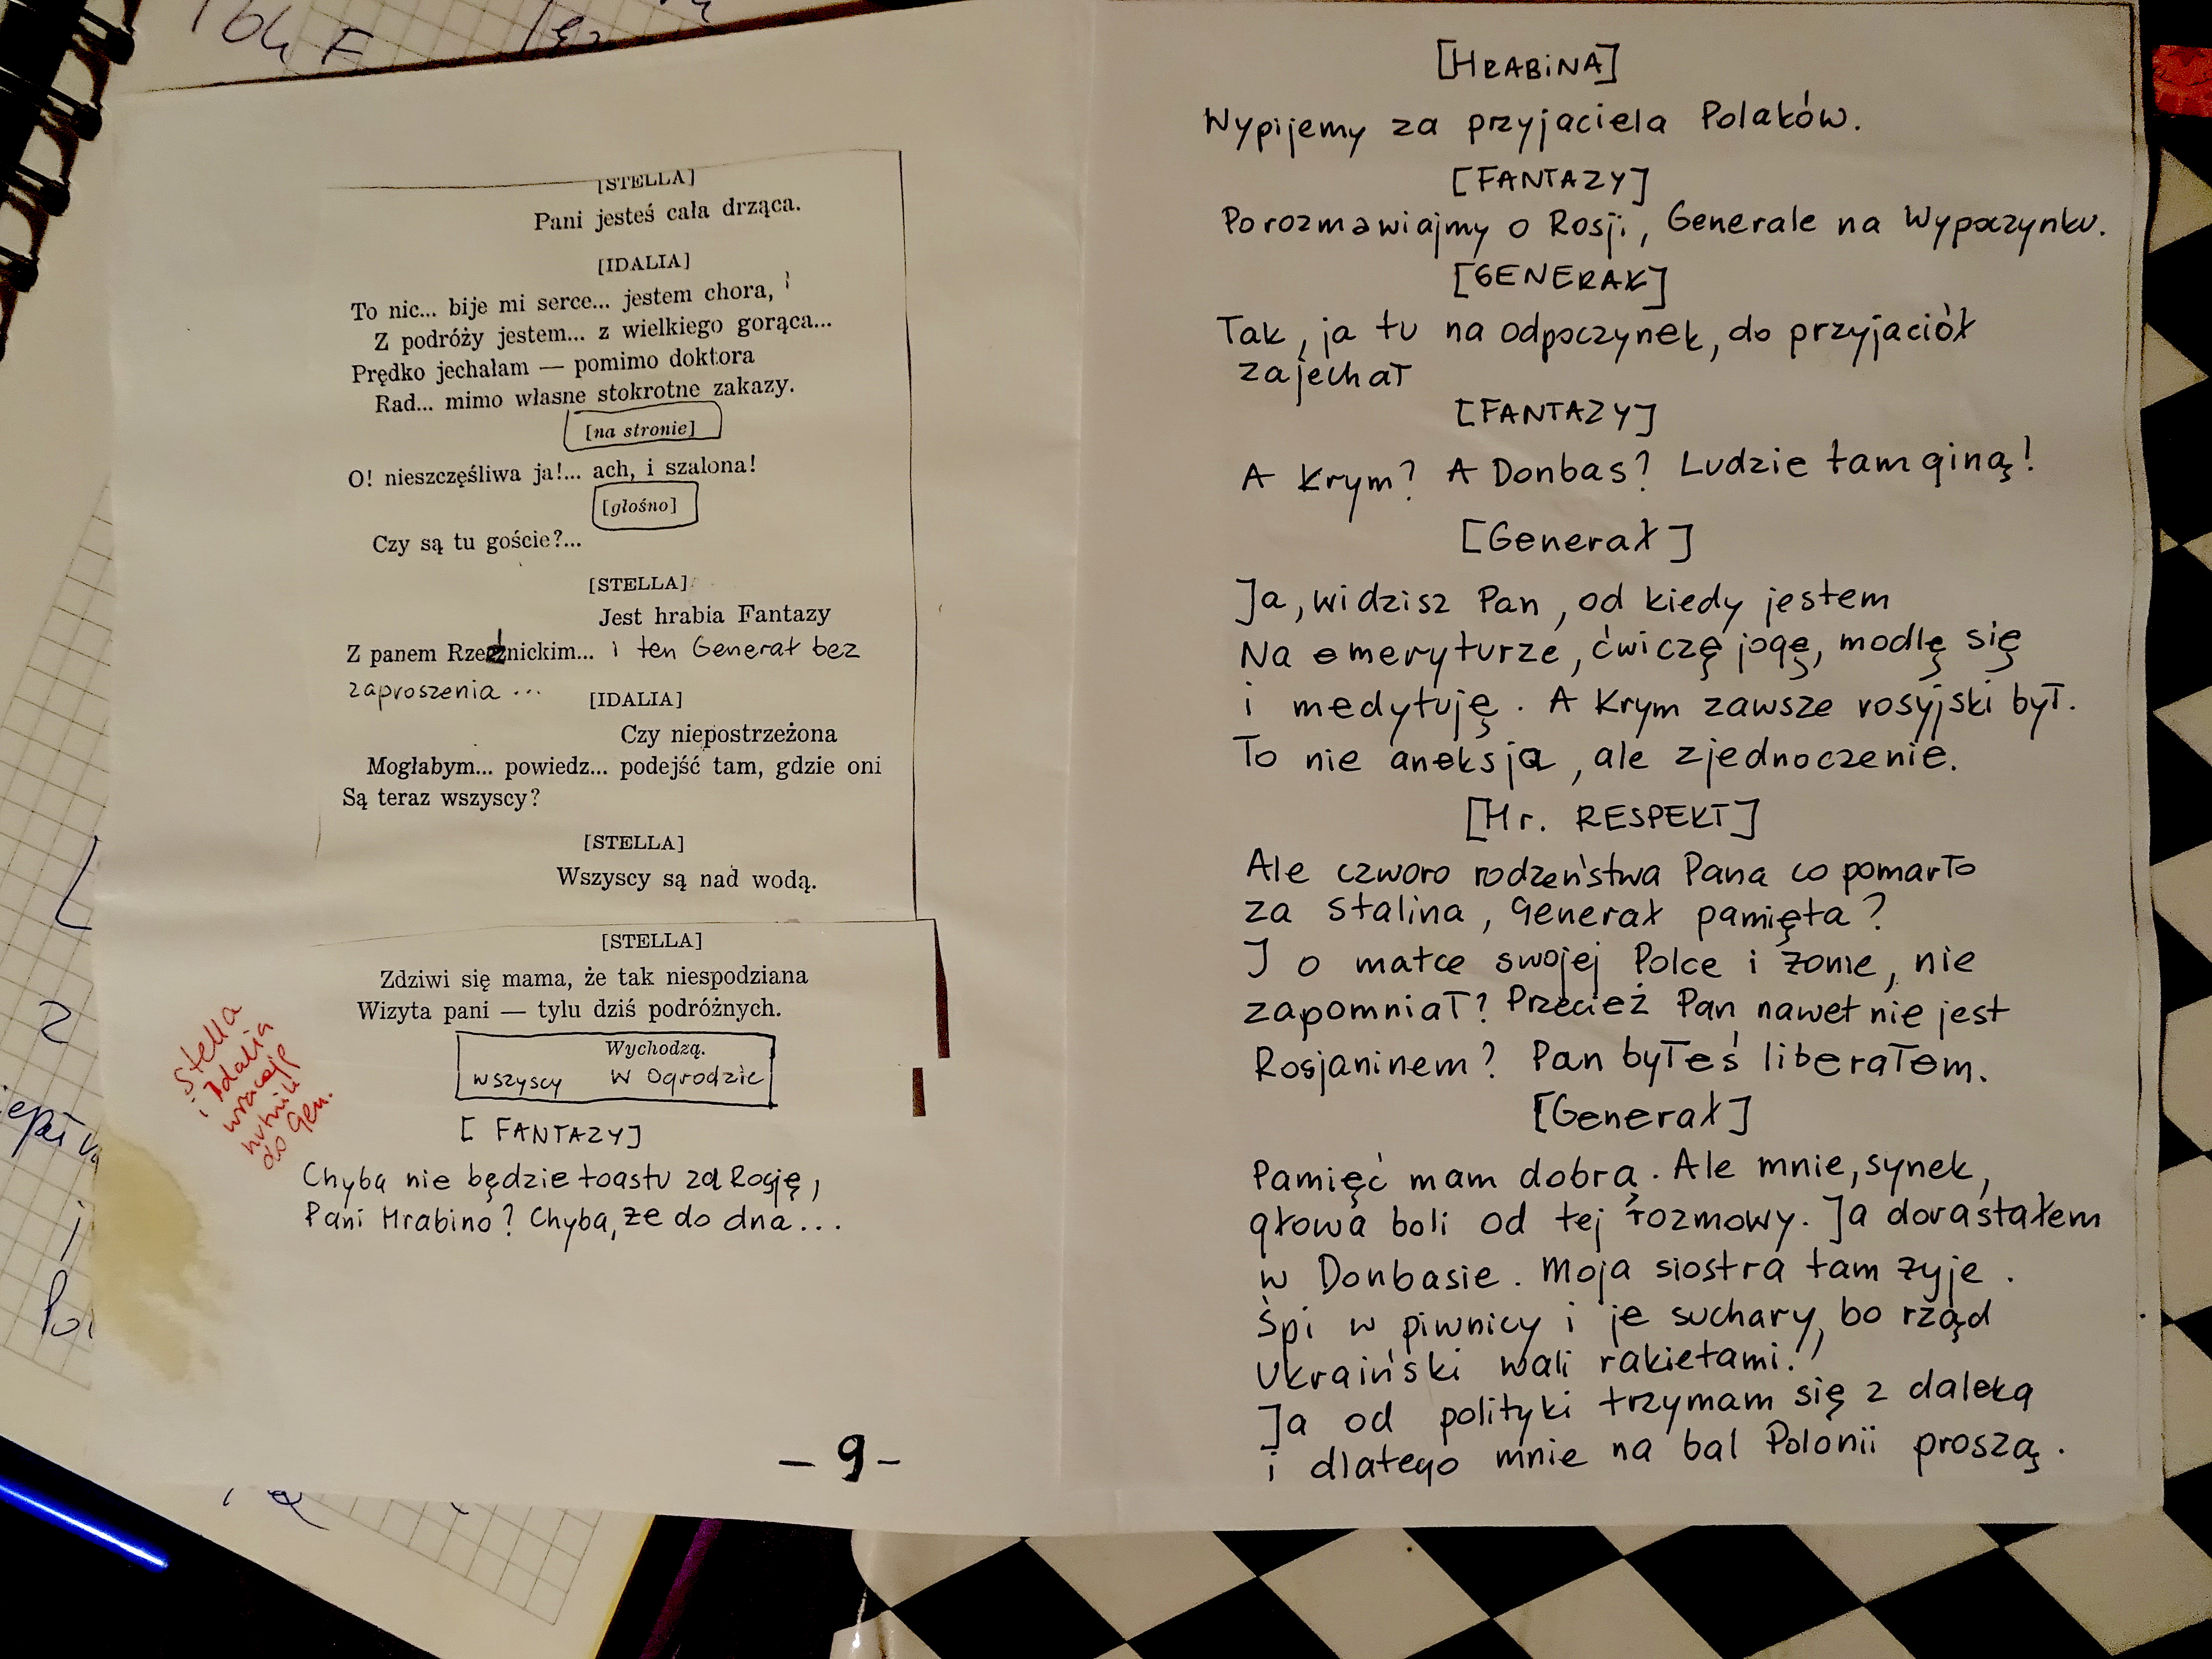 [STELLA]
Pani jesteś cała drząca.
[IDALIA]
To nic... bije mi serce... jestem chora,
Z podróży jestem... z wielkiego gorąca...
Prędko jechałam — pomimo doktora
Rad... mimo własne stokrotne zakazy.
[na stronie]
O! nieszczęśliwa ja!... ach, i szalona!
[głośno]
Czy są tu goście?...
[STELLA]
Jest hrabia Fantazy
Z panem Rzecznickim... i ten Generał bez
zaproszenia ...
[IDALIA]
Czy niepostrzeżona
Mogłabym... powiedz... podejść tam, gdzie oni
Są teraz wszyscy?
[STELLA]
Wszyscy są nad wodą.
[STELLA]
Zdziwi się mama, że tak niespodziana
Wizyta pani — tylu dziś podróżnych.
Wychodzą.
wszyscy w Ogrodzie
Stella
i Idalia
do Gen.
[FANTAZY]
Chyba nie będzie toastu za Rosję,
Pani Hrabino? Chyba, że do dna...
- 9 -
[HRABINA]
Wypijemy za przyjaciela Polaków.
[FANTAZY]
Porozmawiajmy o Rosji, Generale na Wypoczynku.
[GENERAŁ]
Tak, ja tu na odpoczynek, do przyjaciół
zajechał
[FANTAZY]
A Krym? A Donbas? Ludzie tam giną!
[Generał]
Ja, widzisz Pan, od kiedy jestem
Na emeryturze, ćwiczę jogę, modlę się
i medytuję. A Krym zawsze rosyjski był.
To nie aneksja, ale zjednoczenie.
[Hr. RESPEKT]
Ale czworo rodzeństwa Pana co pomarło
za Stalina, Generał pamięta?
I o matce swojej Polce i żonie, nie
zapomniał? Przecież Pan nawet nie jest
Rosjaninem? Pan byłeś liberałem.
[Generał]
Pamięć mam dobrą. Ale mnie, synek,
głowa boli od tej rozmowy. Ja dorastałem
w Donbasie. Moja siostra tam żyje.
Śpi w piwnicy i je suchary, bo rząd
Ukraiński wali rakietami.
Ja od polityki trzymam się z daleka
i dlatego mnie na bal Polonii proszą.